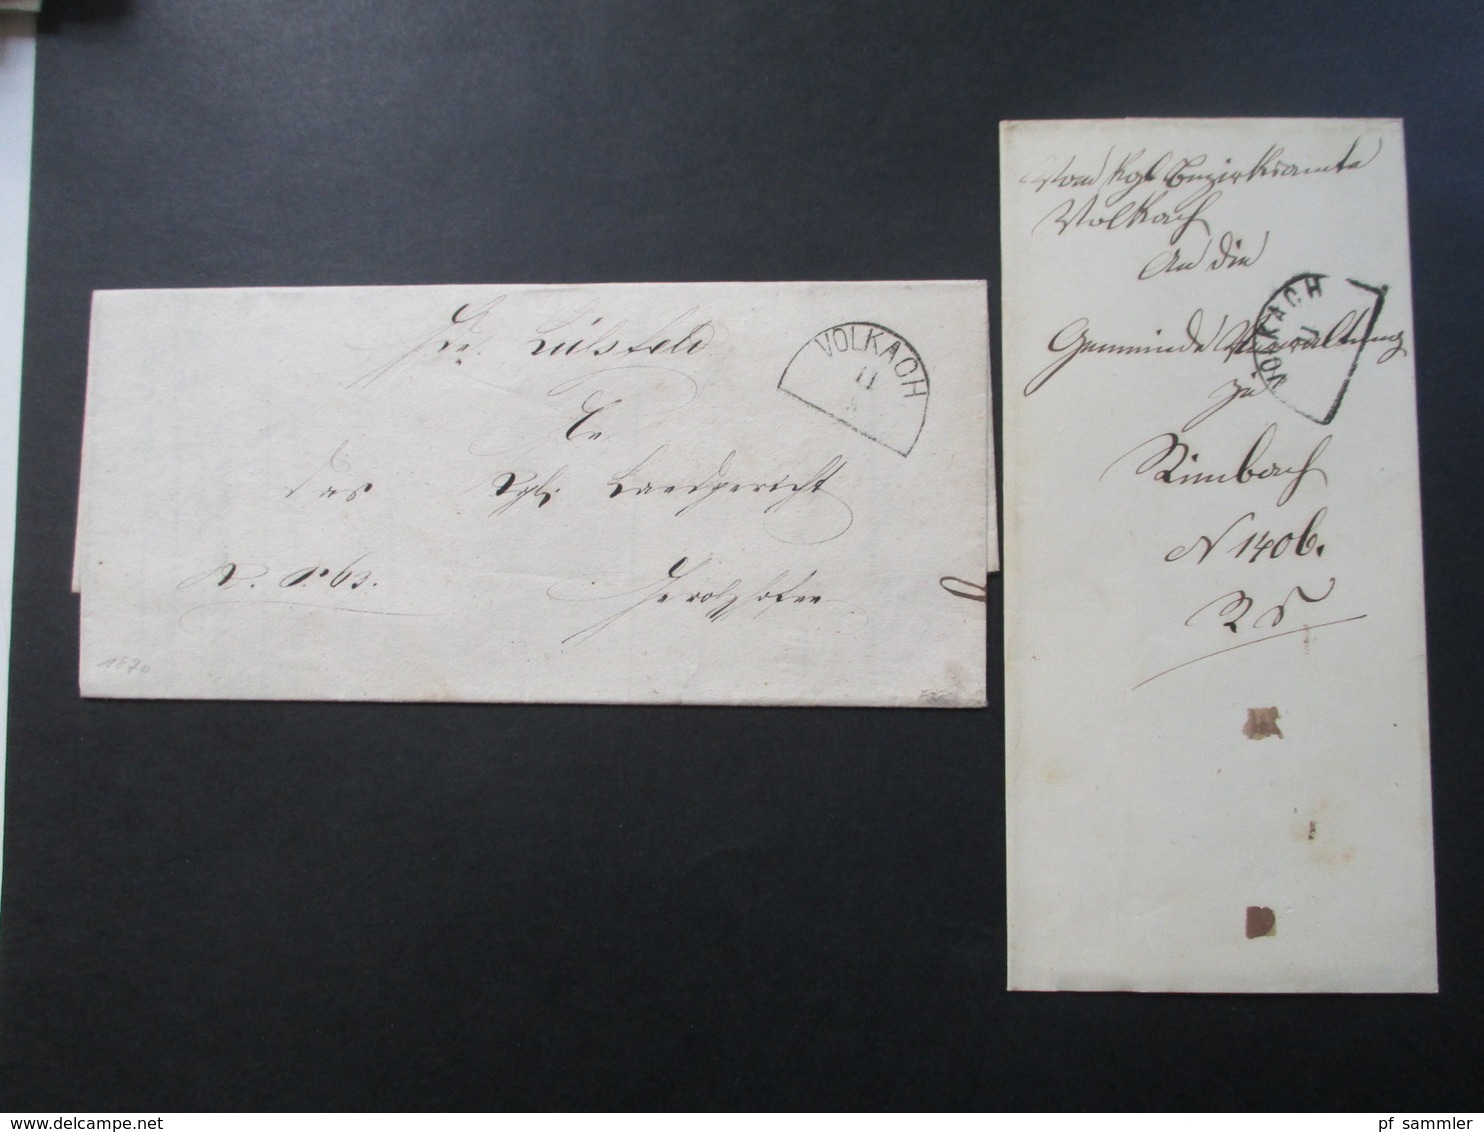 Gde. Lülsfeld
An
das Kgl. Landgericht
Gerolzhofen
VOLKACH
11
1870
Vom Kgl Bezirksamte
Volkach
An die
Gemeinde Verwaltung
zu
Rimbach
N 1406.
R S
VOLKACH
delcampe.net
pf_sammler